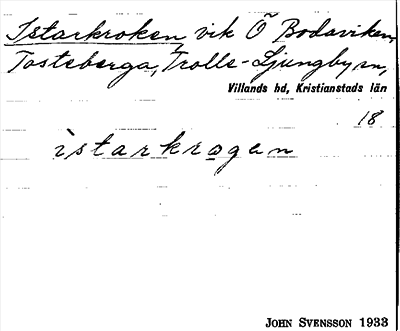 Istarkroken vik Ö Bodaviken,
Tosteberga, Trolle-Ljungby sn,
Villands hd, Kristianstads län
18
istarkrogen
JOHN SVENSSON 1933